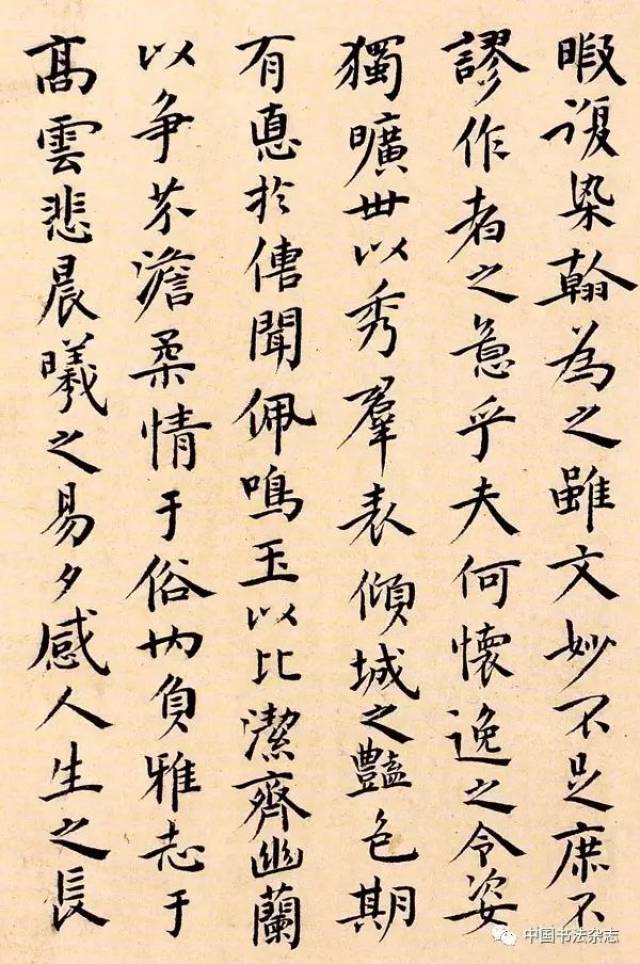 暇復染翰為之雖文妙不足庶不
謬作者之意乎夫何懷逸之令姿
獨曠世以秀羣表傾城之豔色期
有悳於傳聞佩鳴玉以比潔齊幽蘭
以争芬澹柔情于俗内負雅志于
高雲悲晨曦之易夕感人生之長
中国书法杂志